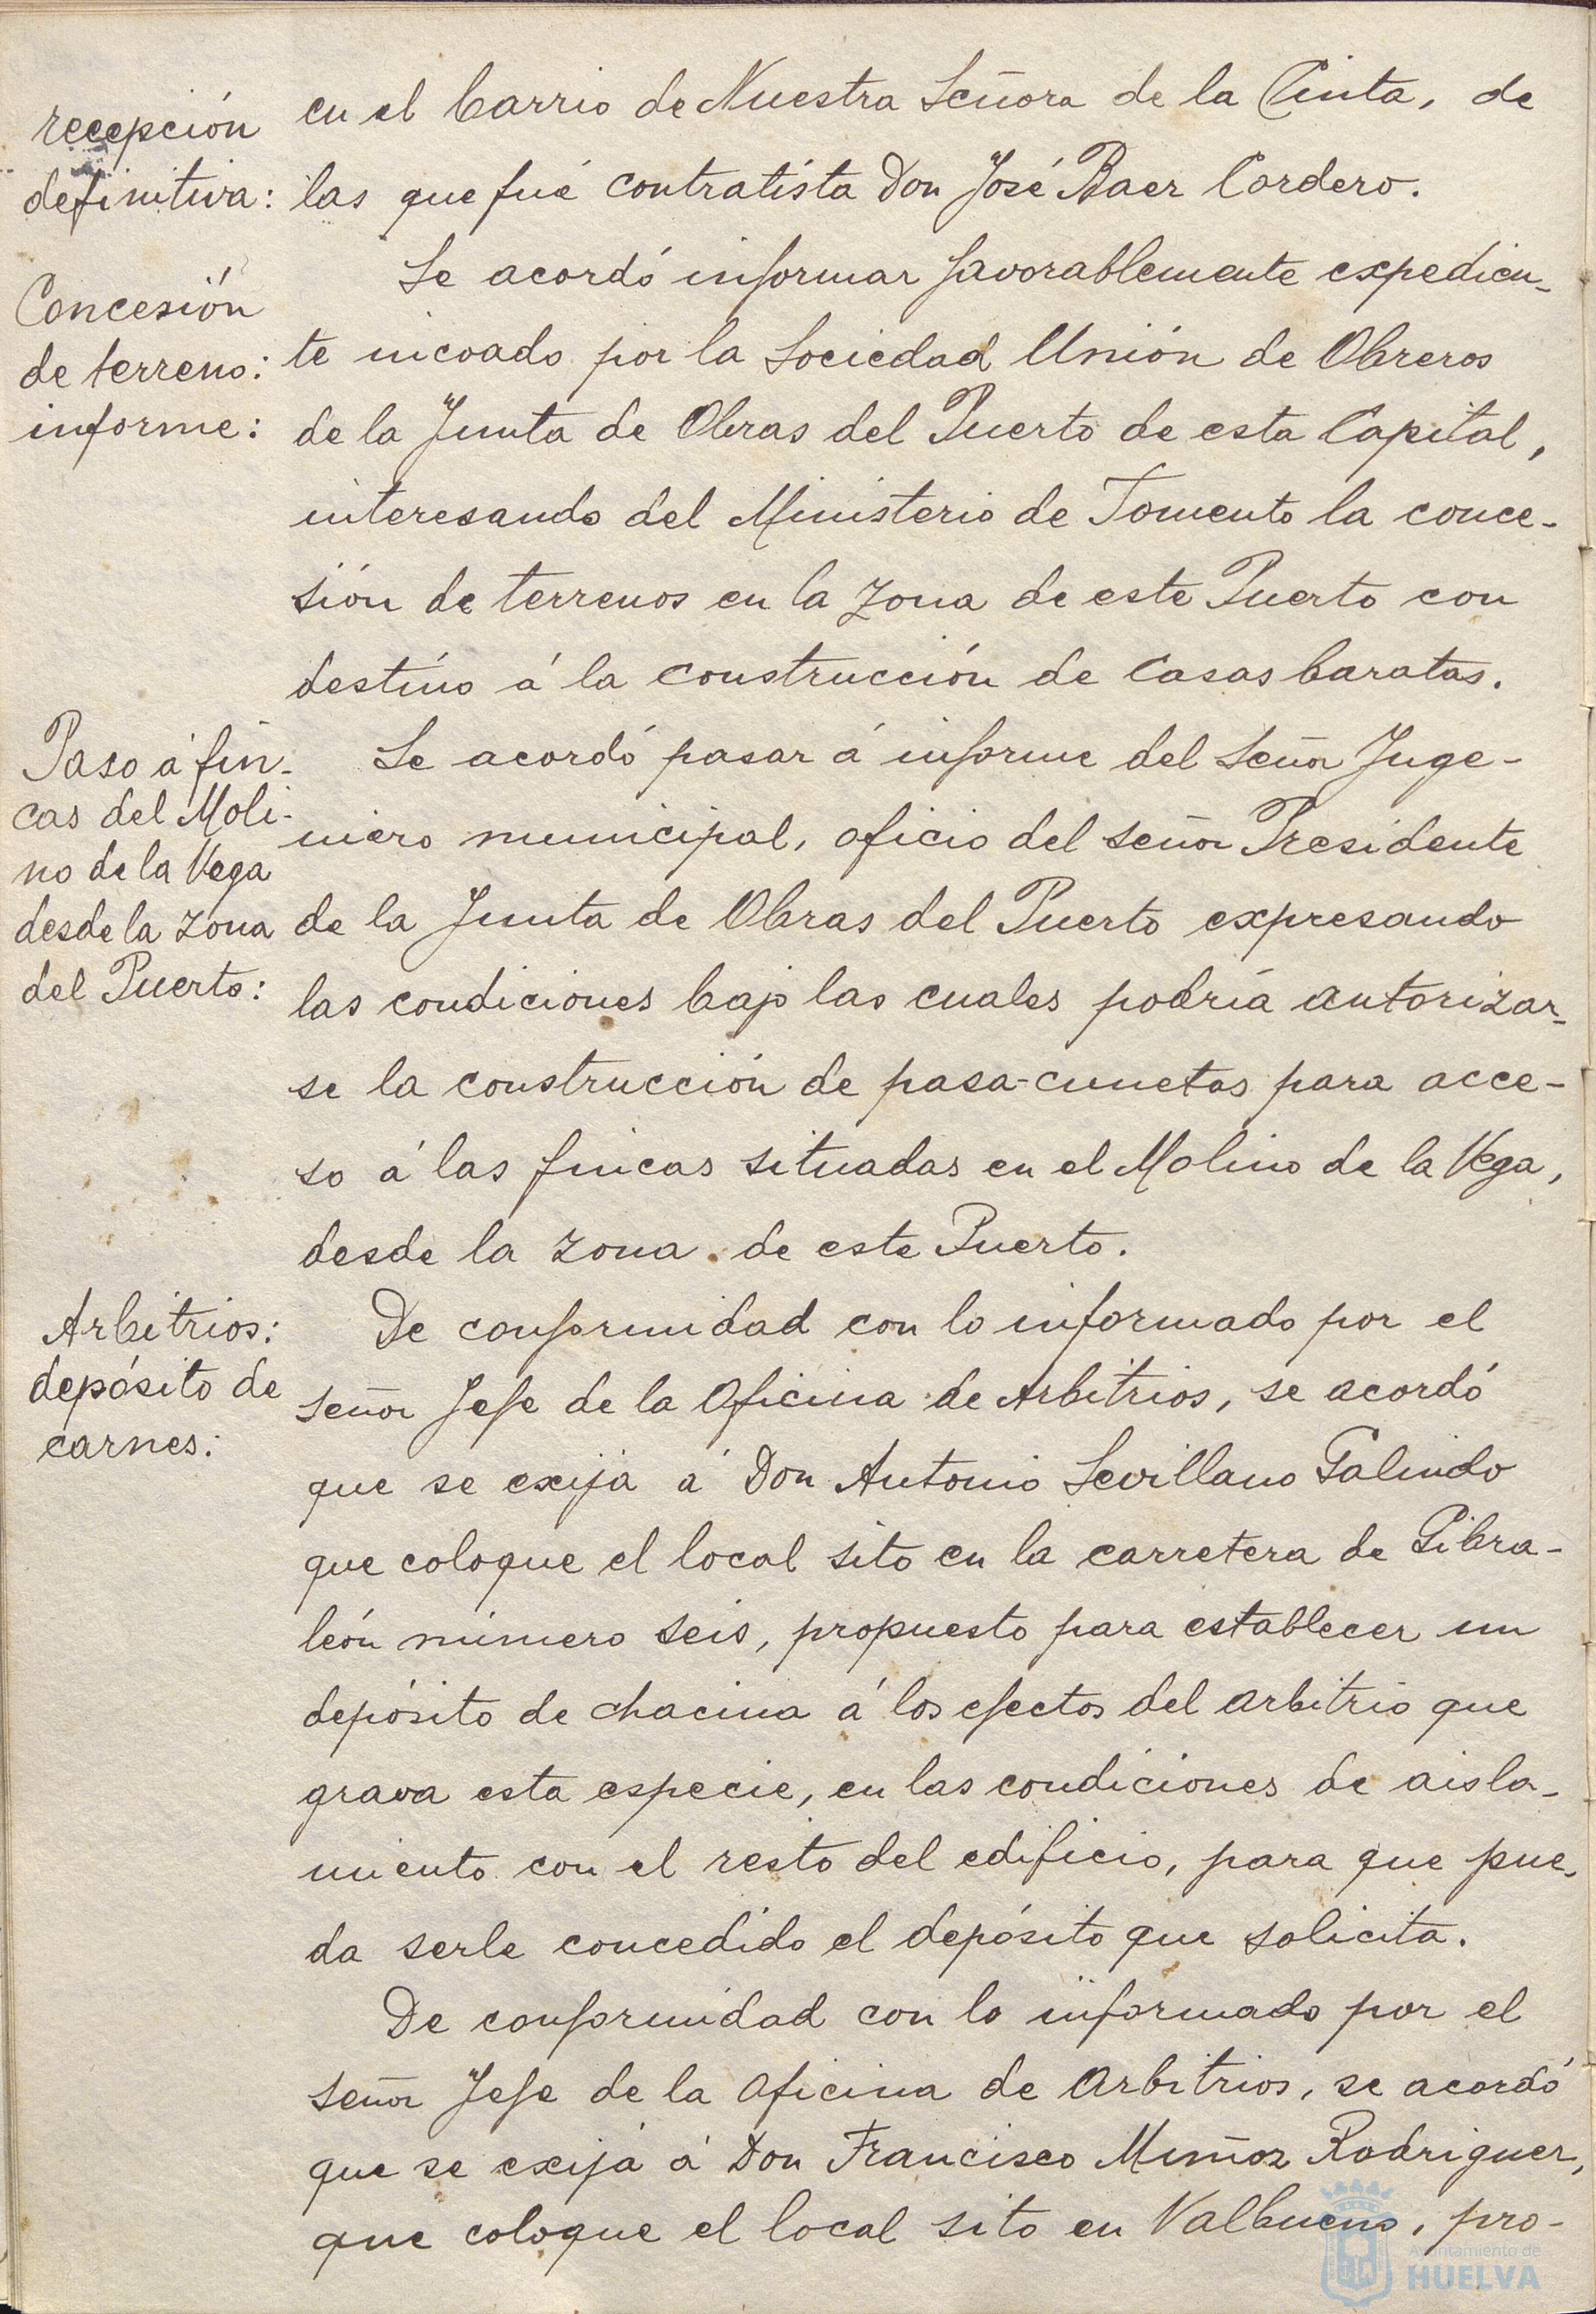 recepción
definitiva:
en el barrio de Nuestra Señora de la Cinta, de
las que fué contratista Don José Baer Cordero.
Concesión
de terreno:
informe:
Se acordó informar favorablemente expedien-
te incoado por la Sociedad Unión de Obreros
de la Junta de Obras del Puerto de esta Capital,
interesando del Ministerio de Fomento la conce-
sión de terrenos en la zona de este Puerto con
destino á la construcción de casas baratas.
Paso á fin-
cas del Moli-
no de la Vega
desde la zona
del Puerto:
Se acordó pasar á informe del Señor Inge-
niero municipal, oficio del señor Presidente
de la Junta de Obras del Puerto expresando
las condiciones bajo las cuales podría autorizar-
se la construcción de pasa-cunetas para acce-
so á las fincas situadas en el Molino de la Vega,
desde la zona de este Puerto.
Arbitrios:
depósito de
carnes:
De conformidad con lo informado por el
señor Jefe de la Oficina de Arbitrios, se acordó
que se exija á Don Antonio Sevillano Galindo
que coloque el local sito en la carretera de Gibra-
león número seis, propuesto para establecer un
depósito de chacina á los efectos del arbitrio que
grava esta especie, en las condiciones de aisla-
miento con el resto del edificio, para que pue-
da serle concedido el depósito que solicita.
De conformidad con lo informado por el
señor Jefe de la Oficina de Arbitrios, se acordó
que se exija á Don Francisco Muñoz Rodriguez,
que coloque el local sito en Valbueno, pro-
Ayuntamiento de
HUELVA